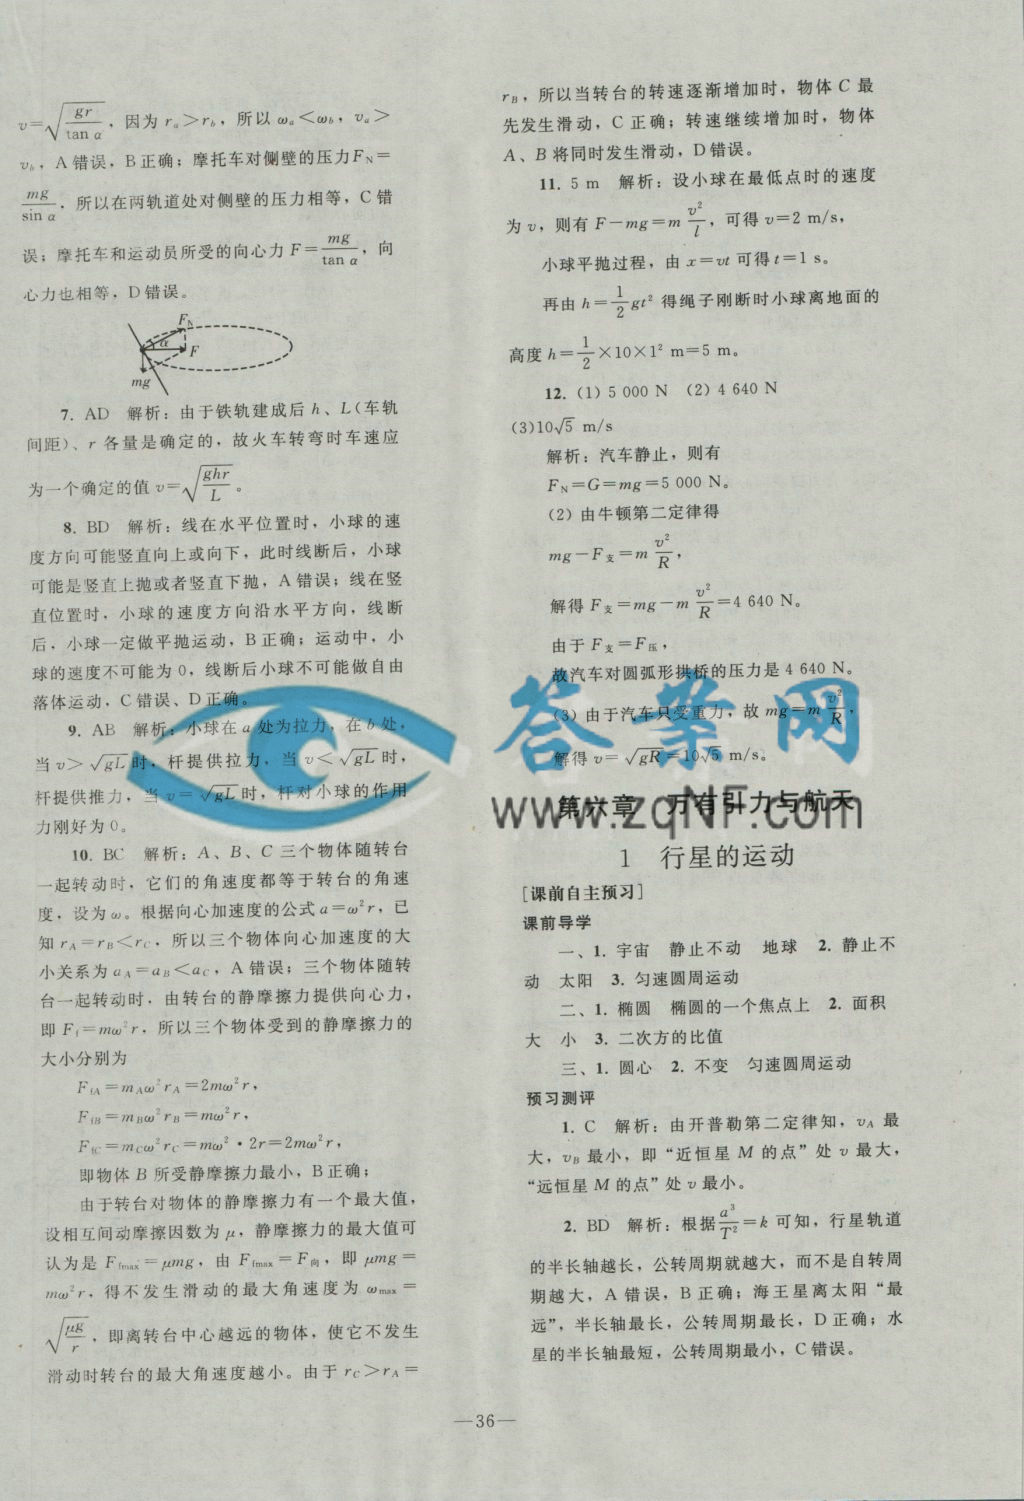 v=√(gr/tan α), 因为 rₐ>r_b, 所以 ωₐ<ω_b, vₐ>
v_b, A错误, B正确; 摩托车对侧壁的压力F_N=
mg/sin α, 所以在两轨道处对侧壁的压力相等, C错
误; 摩托车和运动员所受的向心力 F=mg/tan α, 向
心力也相等, D错误。
F_N
α
F
mg
7. AD 解析: 由于铁轨建成后 h、L(车轨
间距)、r 各量是确定的, 故火车转弯时车速应
为一个确定的值 v=√(ghr/L)。
8. BD 解析: 线在水平位置时, 小球的速
度方向可能竖直向上或向下, 此时线断后, 小球
可能是竖直上抛或者竖直下抛, A错误; 线在竖
直位置时, 小球的速度方向沿水平方向, 线断
后, 小球一定做平抛运动, B正确; 运动中, 小
球的速度不可能为0, 线断后小球不可能做自由
落体运动, C错误、D正确。
9. AB 解析: 小球在 a 处为拉力, 在 b 处,
当 v>√gL 时, 杆提供拉力, 当 v<√gL 时,
杆提供推力, 当 v=√gL 时, 杆对小球的作用
力刚好为0。
10. BC 解析: A、B、C 三个物体随转台
一起转动时, 它们的角速度都等于转台的角速
度, 设为 ω。根据向心加速度的公式 a=ω²r, 已
知 r_A=r_B<r_C, 所以三个物体向心加速度的大
小关系为 a_A=a_B<a_C, A错误; 三个物体随转
台一起转动时, 由转台的静摩擦力提供向心力,
即 F_f=mω²r, 所以三个物体受到的静摩擦力的
大小分别为
F_fA=m_Aω²r_A=2mω²r,
F_fB=m_Bω²r_B=mω²r,
F_fC=m_Cω²r_C=mω²·2r=2mω²r,
即物体 B 所受静摩擦力最小, B正确;
由于转台对物体的静摩擦力有一个最大值,
设相互间动摩擦因数为 μ, 静摩擦力的最大值可
认为是 F_fmax=μmg, 由 F_fmax=F_向, 即 μmg=
mω²r, 得不发生滑动的最大角速度为 ω_max=
√(μg/r), 即离转台中心越远的物体, 使它不发生
滑动时转台的最大角速度越小。由于 r_C>r_A=
r_B, 所以当转台的转速逐渐增加时, 物体 C 最
先发生滑动, C正确; 转速继续增加时, 物体
A、B将同时发生滑动, D错误。
11. 5 m 解析: 设小球在最低点时的速度
为 v, 则有 F-mg=m v²/l, 可得 v=2 m/s,
小球平抛过程, 由 x=vt 可得 t=1 s。
再由 h=1/2 gt² 得绳子刚断时小球离地面的
高度 h=1/2×10×1² m=5 m。
12. (1) 5 000 N (2) 4 640 N
(3)10√5 m/s
解析: 汽车静止, 则有
F_N=G=mg=5 000 N。
(2) 由牛顿第二定律得
mg-F_支=m v²/R,
解得 F_支=mg-m v²/R=4 640 N。
由于 F_支=F_压,
故汽车对圆弧形拱桥的压力是 4 640 N。
(3) 由于汽车只受重力, 故 mg=m v²/R,
解得 v=√gR=10√5 m/s。
答案网
www.zqNF.com
第六章 万有引力与航天
1 行星的运动
[课前自主预习]
课前导学
一、1. 宇宙 静止不动 地球 2. 静止不
动 太阳 3. 匀速圆周运动
二、1. 椭圆 椭圆的一个焦点上 2. 面积
大 小 3. 二次方的比值
三、1. 圆心 2. 不变 匀速圆周运动
预习测评
1. C 解析: 由开普勒第二定律知, v_A 最
大, v_B 最小, 即“近恒星 M 的点”处 v 最大,
“远恒星 M 的点”处 v 最小。
2. BD 解析: 根据 a³/T²=k 可知, 行星轨道
的半长轴越长, 公转周期就越大, 而不是自转周
期越大, A错误, B正确; 海王星离太阳“最
远”, 半长轴最长, 公转周期最长, D正确; 水
星的半长轴最短, 公转周期最小, C错误。
—36—